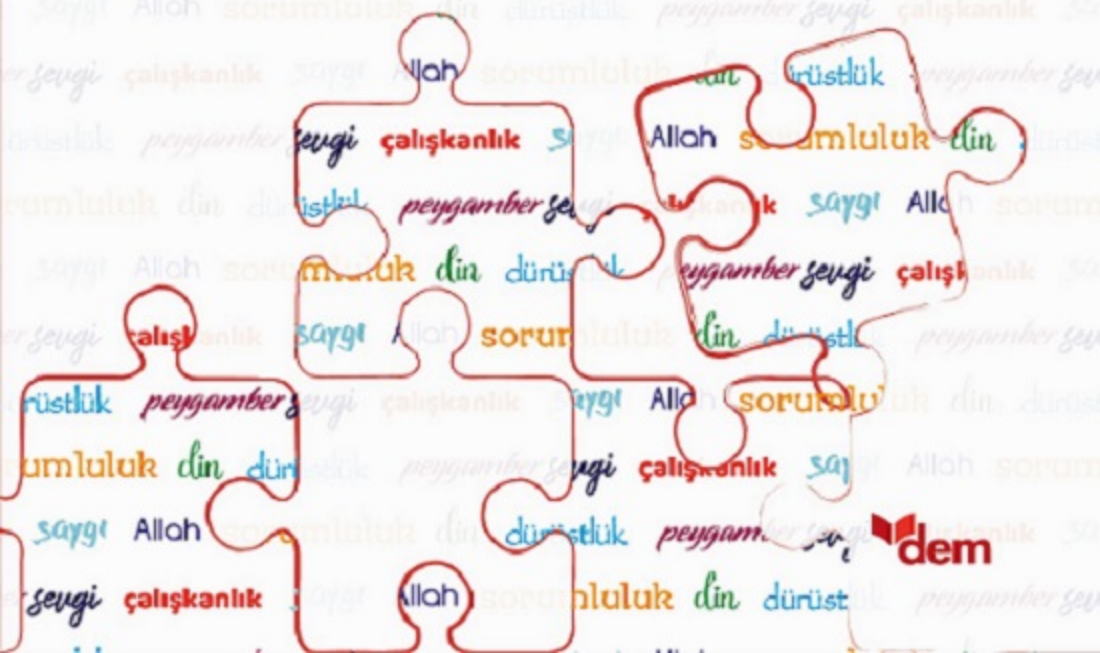 saygı Allah sorumluluk din dürüstlük peygamber sevgi çalışkanlık
sevgi çalışkanlık saygı Allah sorumluluk din dürüstlük peygamber
dürüstlük peygamber sevgi çalışkanlık saygı Allah sorumluluk din dürüstlük
sorumluluk din dürüstlük peygamber sevgi çalışkanlık saygı Allah sorumluluk
saygı Allah sorumluluk din dürüstlük peygamber sevgi çalışkanlık
sevgi çalışkanlık saygı Allah sorumluluk din dürüstlük peygamber
rüstlük peygamber sevgi çalışkanlık saygı Allah sorumluluk din dürüst
umluluk din dürüstlük peygamber sevgi çalışkanlık saygı Allah sorum
saygı Allah sorumluluk din dürüstlük peygamber sevgi çalışkanlık
dem
sevgi çalışkanlık saygı Allah sorumluluk din dürüstlük peygamber